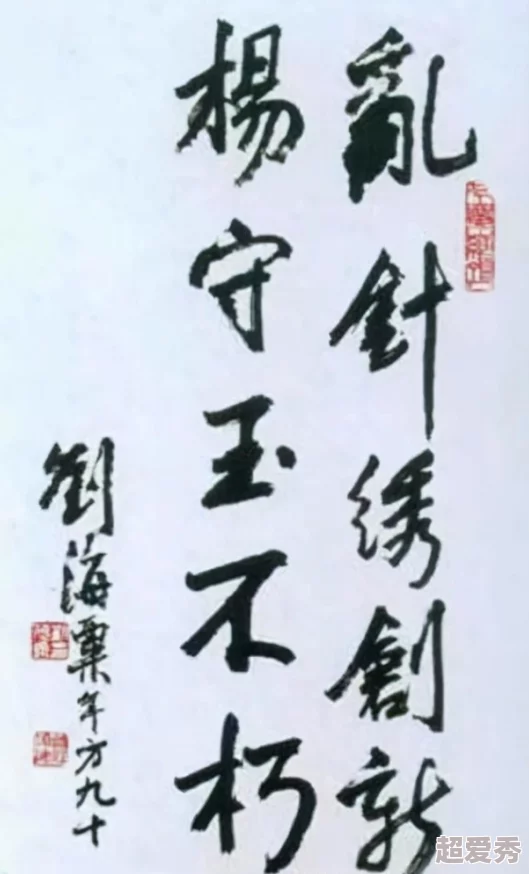 亂針绣創新
楊守玉不朽
劉海粟年方九十
超爱秀